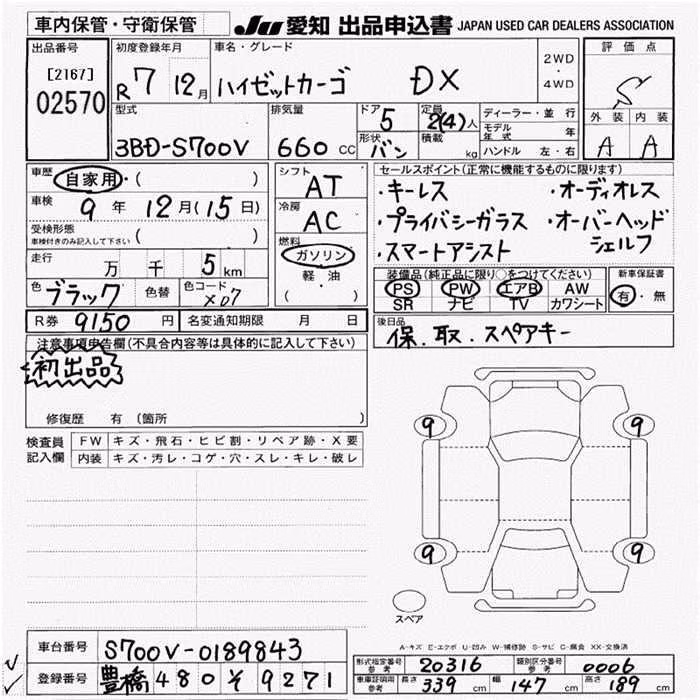 車内保管・守衛保管
JU 愛知 出品申込書 JAPAN USED CAR DEALERS ASSOCIATION
出品番号
[2167]
02570
初度登録年月
R7 12月
車名・グレード
ハイゼットカーゴ DX
2WD
・
4WD
評価点
S
外装 内装
A A
型式
3BD-S700V
排気量
660 CC
ドア
5
形状
バン
定員
2(4)人
積載
kg
ディーラー・並行
モデル年式 年
ハンドル 左・右
車歴 自家用・( )
車検 9年 12月(15日)
受検形態
車検付きのみ記入して下さい ( )
走行 万 千 5km
色 ブラック 色替 色コード X07
R券 9150円 名変通知期限 月 日
シフト
AT
冷房
AC
燃料
ガソリン
軽・油
( )
セールスポイント(正常に機能するものに限ります)
・キーレス ・オーディオレス
・プライバシーガラス ・オーバーヘッドシェルフ
・スマートアシスト
装備品(純正品に限り○をつけてください)
PS PW エアB AW
SR ナビ TV カワシート
新車保証書
有・無
後日品
保.取.スペアキー
注意事項申告欄(不具合内容等は具体的に記入して下さい)
初出品
修復歴 有 〔箇所 〕
検査員記入欄
FW キズ・飛石・ヒビ割・リペア跡・X要
内装 キズ・汚レ・コゲ・穴・スレ・キレ・破レ
9 9
9 9
スペア
A-キズ E-エクボ U-凹み W-補修跡 S-サビ C-腐食 XX-交換済
車台番号 S700V-0189843
登録番号 豊橋 480 イ 9271
形式指定番号 参考 20316 類別区分番号 参考 0006
車庫証明用 参考 長さ 339 cm 幅 147 cm 高さ 189 cm